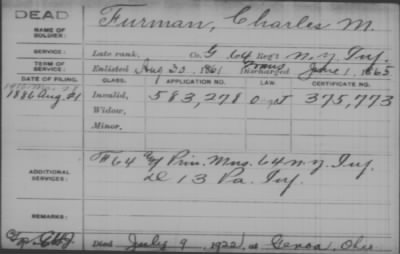 DEAD
NAME OF SOLDIER: Furman, Charles M.
SERVICE: Late rank, Co. G 64 Reg't N.Y. Inf.
TERM OF SERVICE: Enlisted Aug 30, 1861 Discharged June 1, 1865
DATE OF FILING. CLASS. APPLICATION NO. LAW. CERTIFICATE NO.
1886 Aug. 21 Invalid, 583,278 375,773
Widow,
Minor,
ADDITIONAL SERVICES: 64 Prin. Mus. 64 N.Y. Inf.
D 13 Pa. Inf.
REMARKS:
Died July 9, 1922, at Genoa, Ohio.